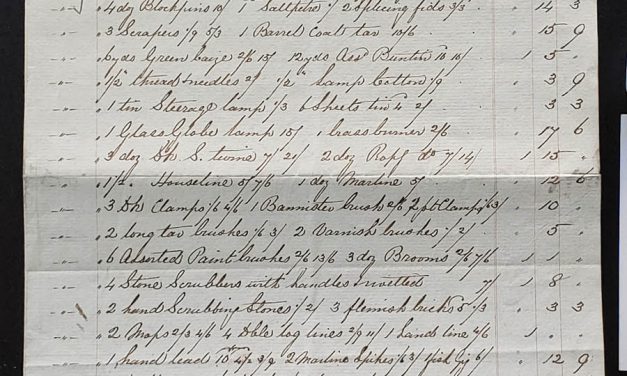 4 doz Blockpins 10/ 1 " Saltpetre 1/ 2 Splicing fids 3/3 " 14 3
" 3 Scrapers 1/9 5/3 1 Barrel Coal tar 10/6 " 15 9
" 6 yds Green baize 2/6 15/ 12 yds Assd Buntin 10 10/ 1 5 "
" 1/2 " thread & needles 2/ 1/2 " Lamp Cotton 1/9 " 3 9
" 1 tin Steerage lamp 1/3 6 Sheets tin 4 2/ " 3 3
" 1 Glass Globe lamp 15/ 1 brass burner 2/6 " 17 6
" 3 doz S. twine 7/ 21/ 2 doz Rop do 7/ 14/ 1 15 "
" 1 1/2 " Houseline 5/ 7/6 1 doz Marline 5/ " 12 6
" 3 Clamps 1/6 4/6 1 Bannister brush 2/6 2 pt Clamps 1/6 3/ " 10 "
" 2 long tar brushes 1/6 3/ 2 Varnish brushes 1/ 2/ " 5 "
" 6 Assorted Paint brushes 2/6 13/6 3 doz Brooms 2/6 7/6 1 1 "
" 4 Stone Scrubbers with handles & rivetted 7/ 1 8 "
" 2 hand Scrubbing Stones 1/ 2/ 3 flemish bricks 5 1/3 " 3 3
" 2 Mops 2/3 4/6 4 Dble log lines 2/9 11/ 1 hand line 4/6 1 " "
" 1 hand lead 3/9 2 Marline Spikes 1/6 3/ 1 fish 6/ " 12 9